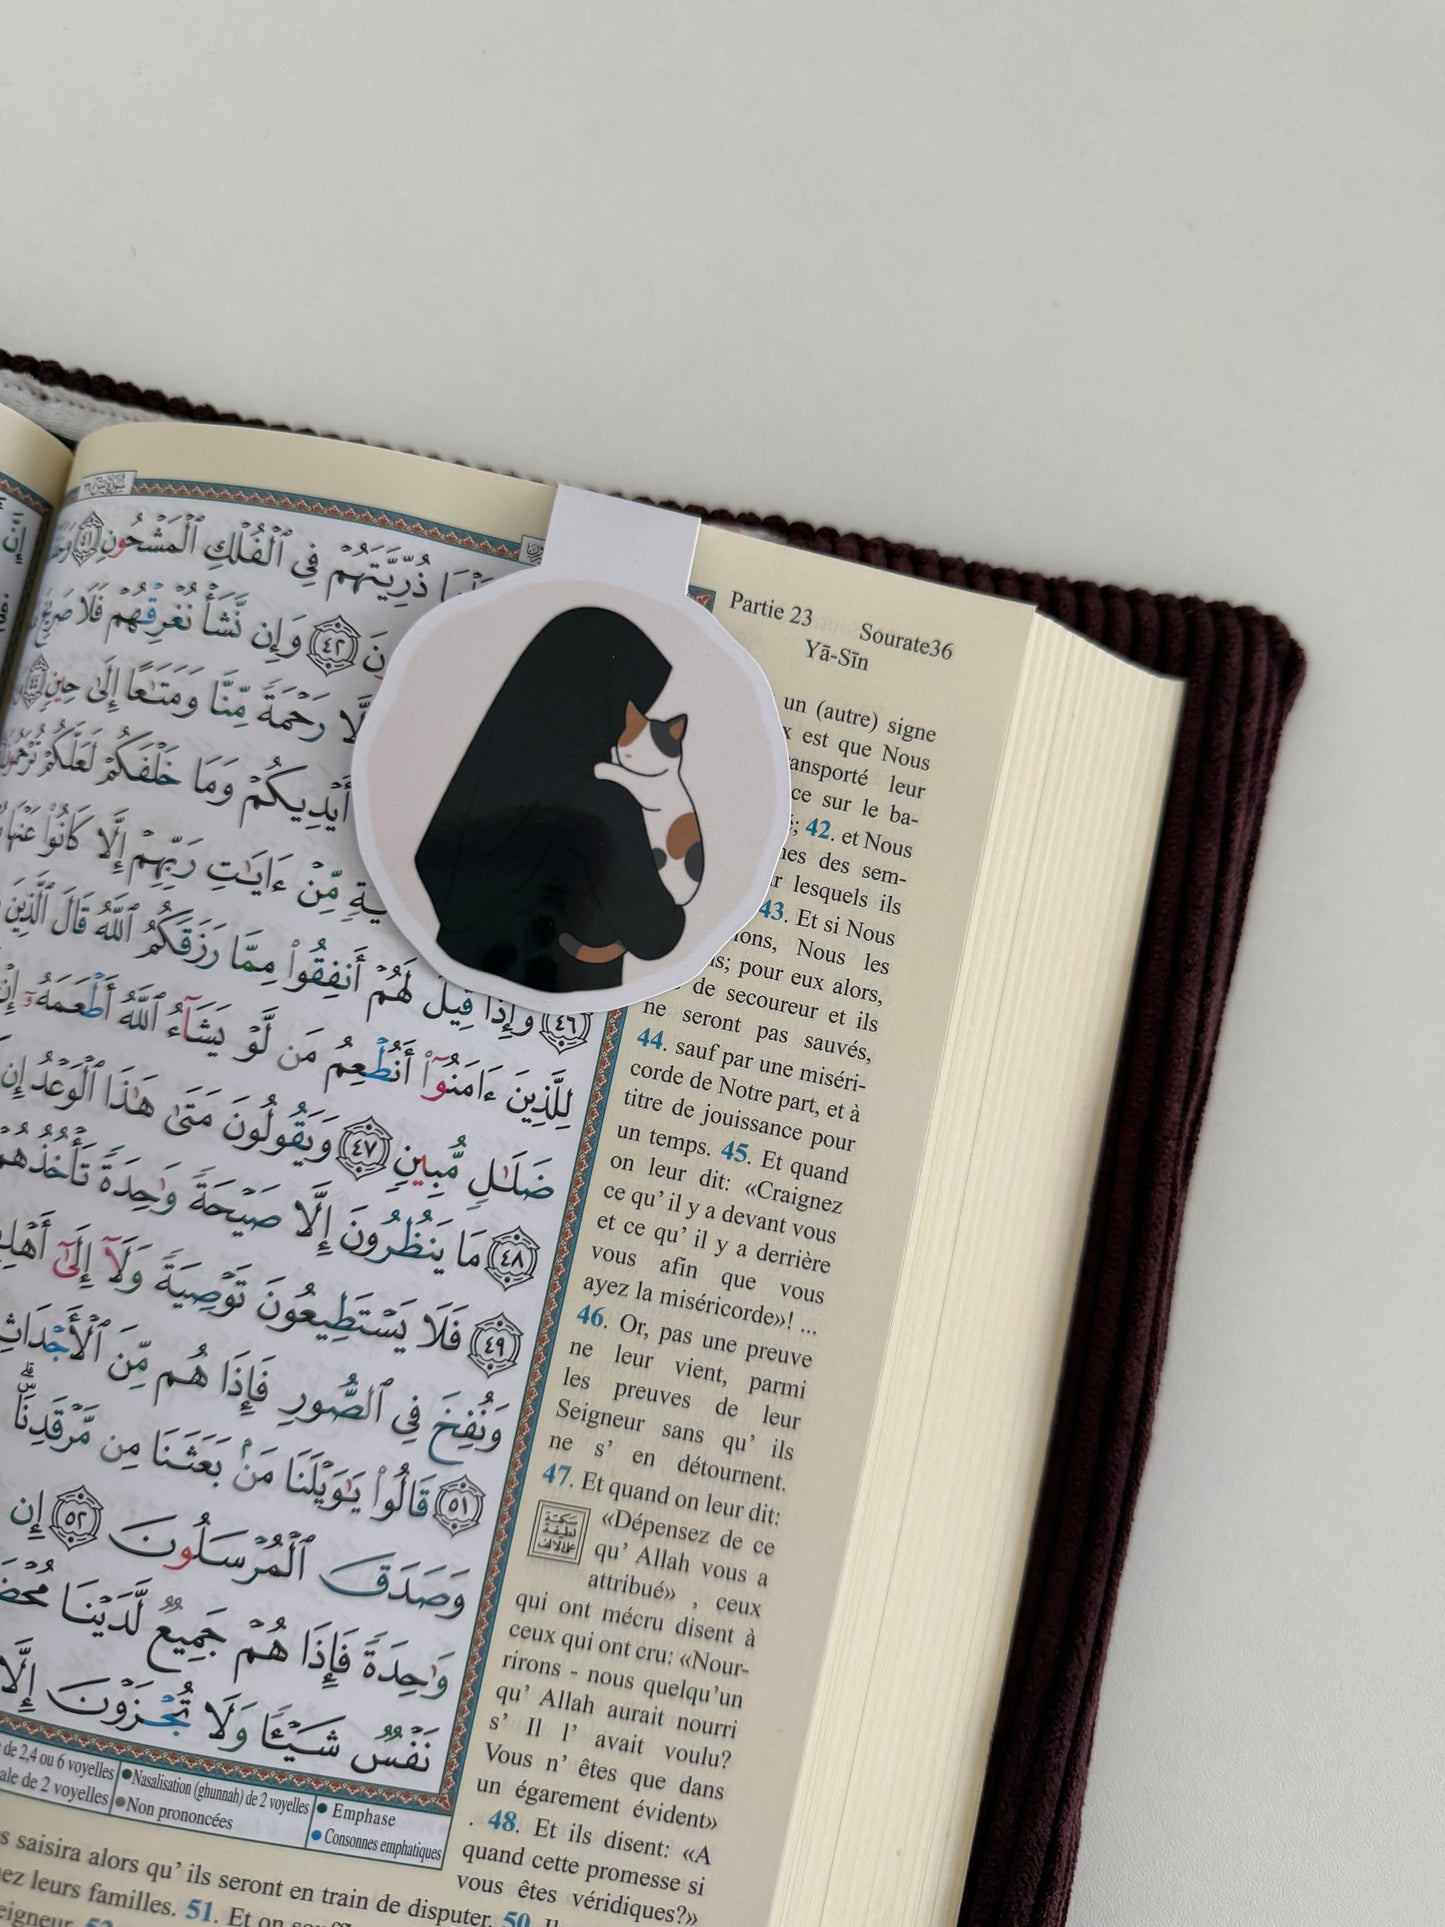 ذُرِّيَّتَهُمۡ فِي ٱلۡفُلۡكِ ٱلۡمَشۡحُونِ ٤١
٤٢ وَإِن نَّشَأۡ نُغۡرِقۡهُمۡ فَلَا صَرِيخَ
رَحۡمَةٗ مِّنَّا وَمَتَٰعًا إِلَىٰ حِينٖ
أَيۡدِيكُمۡ وَمَا خَلۡفَكُمۡ لَعَلَّكُمۡ تُرۡحَمُونَ
مِّنۡ ءَايَٰتِ رَبِّهِمۡ إِلَّا كَانُواْ عَنۡهَا
٤٦ وَإِذَا قِيلَ لَهُمۡ أَنفِقُواْ مِمَّا رَزَقَكُمُ ٱللَّهُ قَالَ ٱلَّذِينَ
لِلَّذِينَ ءَامَنُوٓاْ أَنُطۡعِمُ مَن لَّوۡ يَشَآءُ ٱللَّهُ أَطۡعَمَهُۥٓ إِنۡ
ضَلَٰلٖ مُّبِينٖ ٤٧ وَيَقُولُونَ مَتَىٰ هَٰذَا ٱلۡوَعۡدُ إِن
٤٨ مَا يَنظُرُونَ إِلَّا صَيۡحَةٗ وَٰحِدَةٗ تَأۡخُذُهُمۡ
٤٩ فَلَا يَسۡتَطِيعُونَ تَوۡصِيَةٗ وَلَآ إِلَىٰٓ أَهۡلِهِمۡ
وَنُفِخَ فِي ٱلصُّورِ فَإِذَا هُم مِّنَ ٱلۡأَجۡدَاثِ
٥١ قَالُواْ يَٰوَيۡلَنَا مَنۢ بَعَثَنَا مِن مَّرۡقَدِنَاۗ
وَصَدَقَ ٱلۡمُرۡسَلُونَ ٥٢ إِن
وَٰحِدَةٗ فَإِذَا هُمۡ جَمِيعٞ لَّدَيۡنَا
نَفۡسٞ شَيۡـٔٗا وَلَا تُجۡزَوۡنَ إِلَّا
de 2,4 ou 6 voyelles
de 2 voyelles
Nasalisation (ghunnah) de 2 voyelles
Non prononcées
Emphase
Consonnes emphatiques
Partie 23 Sourate36
Yā-Sīn
un (autre) signe
est que Nous
leur
sur le ba-
42. et Nous
des sem-
lesquels ils
43. Et si Nous
Nous les
pour eux alors,
de secoureur et ils
ne seront pas sauvés,
44. sauf par une miséri-
corde de Notre part, et à
titre de jouissance pour
un temps. 45. Et quand
on leur dit: «Craignez
ce qu' il y a devant vous
et ce qu' il y a derrière
vous afin que vous
ayez la miséricorde»! ...
46. Or, pas une preuve
ne leur vient, parmi
les preuves de leur
Seigneur sans qu' ils
ne s' en détournent.
47. Et quand on leur dit:
«Dépensez de ce
qu' Allah vous a
attribué» , ceux
qui ont mécru disent à
ceux qui ont cru: «Nour-
rirons - nous quelqu'un
qu' Allah aurait nourri
s' Il l' avait voulu?
Vous n' êtes que dans
un égarement évident»
. 48. Et ils disent: «A
quand cette promesse si
vous êtes véridiques?»
saisira alors qu' ils seront en train de disputer. 50.
leurs familles. 51. Et on